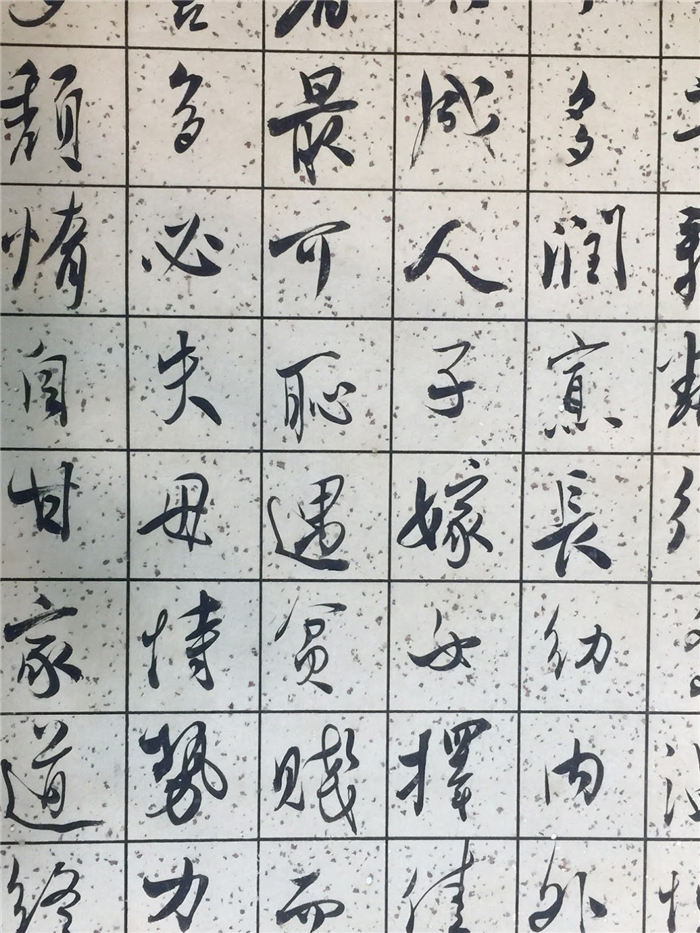 多潤寡長幼內外
成人子嫁女擇佳
最可恥遇貧賤而
多必失毋恃勢力
頹惰自甘家道終